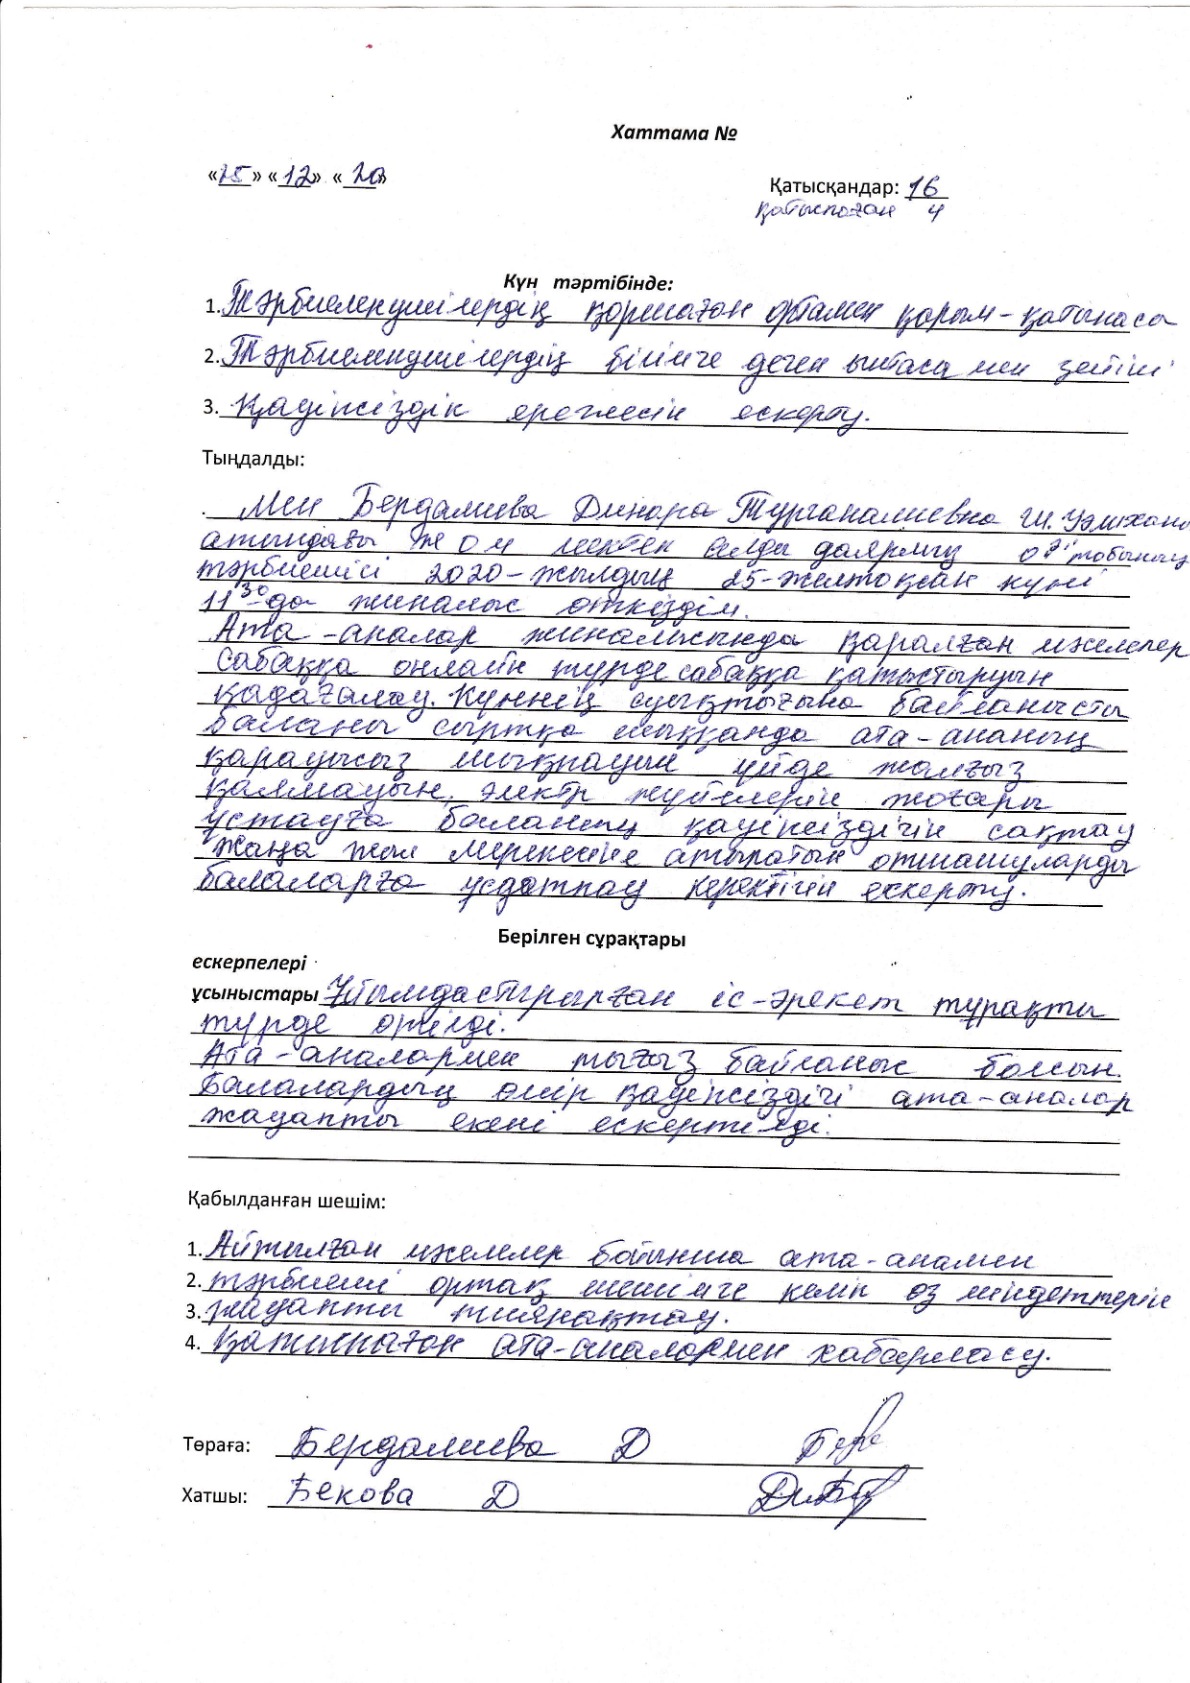 Хаттама №
«25» «12» «20»
Қатысқандар: 16
Қатыспаған 4
Күн тәртібінде:
1. Тәрбиеленушілердің қоршаған ортамен қарым-қатынасы
2. Тәрбиеленушілердің білімге деген ынтасы мен зейіні
3. Қауіпсіздік ережесін ескерту.
Тыңдалды:
Мен Бердалиева Динара Турганалиевна Ш. Уәлиханов
атындағы ЖОМ мектеп алды даярлық тобының
тәрбиешісі 2020-жылдың 25-желтоқсан күні
11³⁰-да жиналыс өткіздім.
Ата-аналар жиналысында қаралған мәселелер
сабаққа онлайн түрде сабаққа қатыстыруын
қадағалау. Күннің суықтығына байланысты
баланы сыртқа шыққанда ата-ананың
қарауысыз шықпауын үйде жалғыз
қалмауын. электр жүйелерін жоғары
ұстауға баланың қауіпсіздігін сақтау
Жаңа жыл мерекесіне атылатын отшашуларды
балаларға ұсдатпау керектігін ескерту.
Берілген сұрақтары
ескерпелері
ұсыныстары Ұйымдастырылған іс-әрекет тұрақты
түрде өтілді.
Ата-аналармен тығыз байланыс болсын.
Балалардың өмір қауіпсіздігі ата-аналар
жауапты екені ескертілді.
Қабылданған шешім:
1. Айтылған мәселелер бойынша ата-анамен
2. тәрбиеші ортақ шешімге келіп өз міндеттерін
3. жауапты тиянақтау.
4. Қатыспаған ата-аналармен хабарласу.
Төраға: Бердалиева Д
Хатшы: Бекова Д